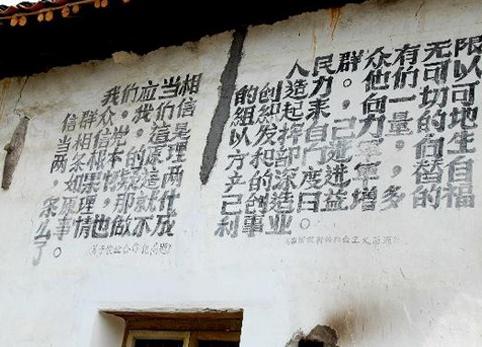 我们应当相
信群众,我们应
当相信党,这是
两条根本的原理
。如果怀疑这两
条原理,那就什
么事情也做不成
了。
《关于农业合作化问题》
人民群众有无限
的创造力。他们可以
组织起来,向一切可
以发挥自己力量的地
方和部门进军,向生
产的深度进军,替自
己创造日益增多的福
利事业。